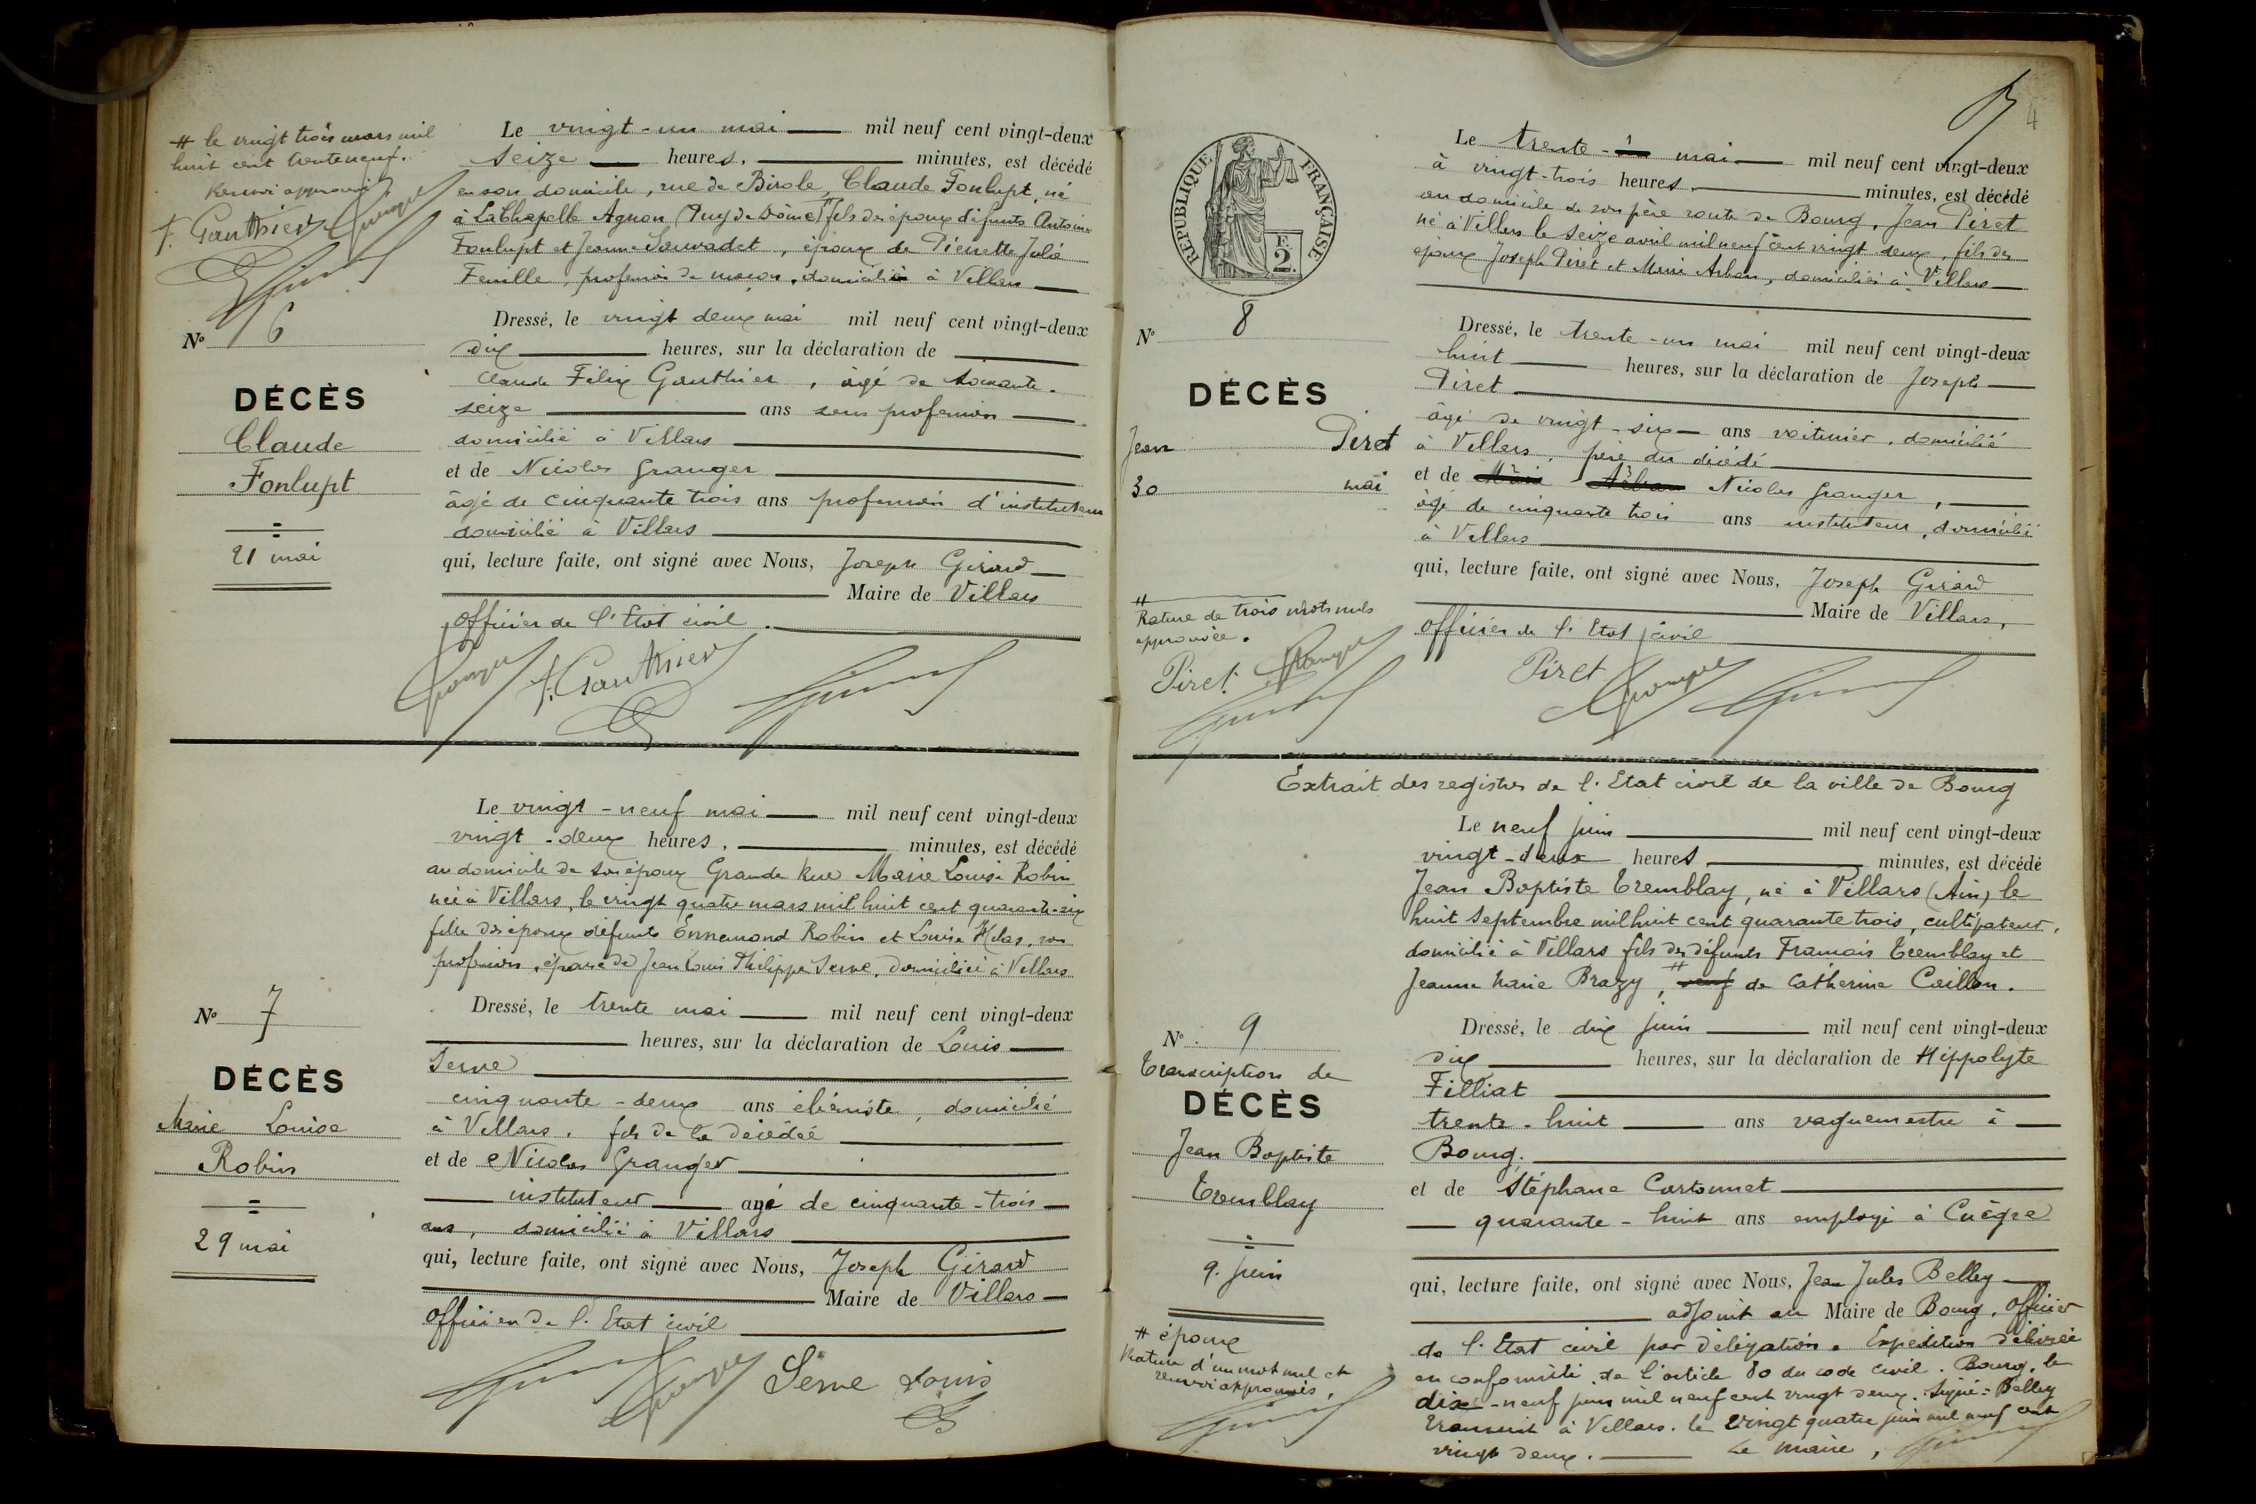 # le vingt trois mars mil
huit cent trente neuf.
Renvoi approuvé
F. Gauthier Granger
Nº 6
DÉCÈS
Claude
Fonlupt
21 mai
Le vingt-un mai mil neuf cent vingt-deux
seize heures, minutes, est décédé
en son domicile, rue de Birole, Claude Fonlupt, né
à La Chapelle Agnon (Puy de Dôme) # fils des époux défunts Antoine
Fonlupt et Jeanne Sauvadet, époux de Pierrette Julie
Feuille, profession de maçon, domicilié à Villars
Dressé, le vingt deux mai mil neuf cent vingt-deux
dix heures, sur la déclaration de
Claude Félix Gauthier, âgé de soixante-
seize ans sans profession
domicilié à Villars
et de Nicolas Granger
âgé de cinquante trois ans profession d'instituteur
domicilié à Villars
qui, lecture faite, ont signé avec Nous, Joseph Girard
Maire de Villars
officier de l'Etat civil.
Granger F. Gauthier
Nº 7
DÉCÈS
Marie Louise
Robin
29 mai
Le vingt-neuf mai mil neuf cent vingt-deux
vingt-deux heures, minutes, est décédé
au domicile de son époux Grande Rue Marie Louise Robin
née à Villars, le vingt quatre mars mil huit cent quarante-six
fille des époux défunts Ennemond Robin et Louise, san
profession, épouse de Jean Louis Philippe Serve, domiciliée à Villars
Dressé, le trente mai mil neuf cent vingt-deux
heures, sur la déclaration de Louis
Serve
cinquante-deux ans ébéniste, domicilié
à Villars, fils de la décédée
et de Nicolas Granger
instituteur agé de cinquante-trois
ans, domicilié à Villars
qui, lecture faite, ont signé avec Nous, Joseph Girard
Maire de Villars
officier de l'Etat civil
Granger Serve Louis
4
RÉPUBLIQUE FRANÇAISE
F.
2.
Nº 8
DÉCÈS
Jean Piret
30 mai
#
Rature de trois mots nuls
approuvée.
Piret. Granger
Le trente mai mil neuf cent vingt-deux
à vingt-trois heures, minutes, est décédé
au domicile de son père route de Bourg, Jean Piret
né à Villars le seize avril mil neuf cent vingt deux, fils des
époux Joseph Piret et Marie Arban, domiciliés à Villars
Dressé, le trente-un mai mil neuf cent vingt-deux
huit heures, sur la déclaration de Joseph
Piret
âgé de vingt-six ans voiturier, domicilié
à Villars, père du décédé
et de Marie Arban Nicolas Granger,
âgé de cinquante trois ans instituteur, domicilié
à Villars
qui, lecture faite, ont signé avec Nous, Joseph Girard
Maire de Villars,
officier de l'Etat civil
Piret Granger
Extrait des registres de l'Etat civil de la ville de Bourg
Nº 9
Transcription de
DÉCÈS
Jean Baptiste
Tremblay
9. juin
# époux
Rature d'un mot nul et
renvoi approuvés.
Le neuf juin mil neuf cent vingt-deux
vingt-deux heures minutes, est décédé
Jean Baptiste Tremblay, né à Villars (Ain) le
huit septembre mil huit cent quarante trois, cultivateur,
domicilié à Villars fils des défunts François Tremblay et
Jeanne Marie Brazy, # veuf de Catherine Caillon.
Dressé, le dix juin mil neuf cent vingt-deux
dix heures, sur la déclaration de Hippolyte
Filliat
trente-huit ans vaguemestre à
Bourg.
et de Stéphane Cartonnet
quarante-huit ans employé à Cuègre
qui, lecture faite, ont signé avec Nous, Jean Jules Belley
adjoint au Maire de Bourg, officier
de l'Etat civil par délégation. Expédition délivrée
en conformité de l'article 80 du code civil. Bourg, le
dix-neuf juin mil neuf cent vingt deux. Signé: Belley
transcrit à Villars, le vingt quatre juin mil neuf cent
vingt deux. Le Maire,